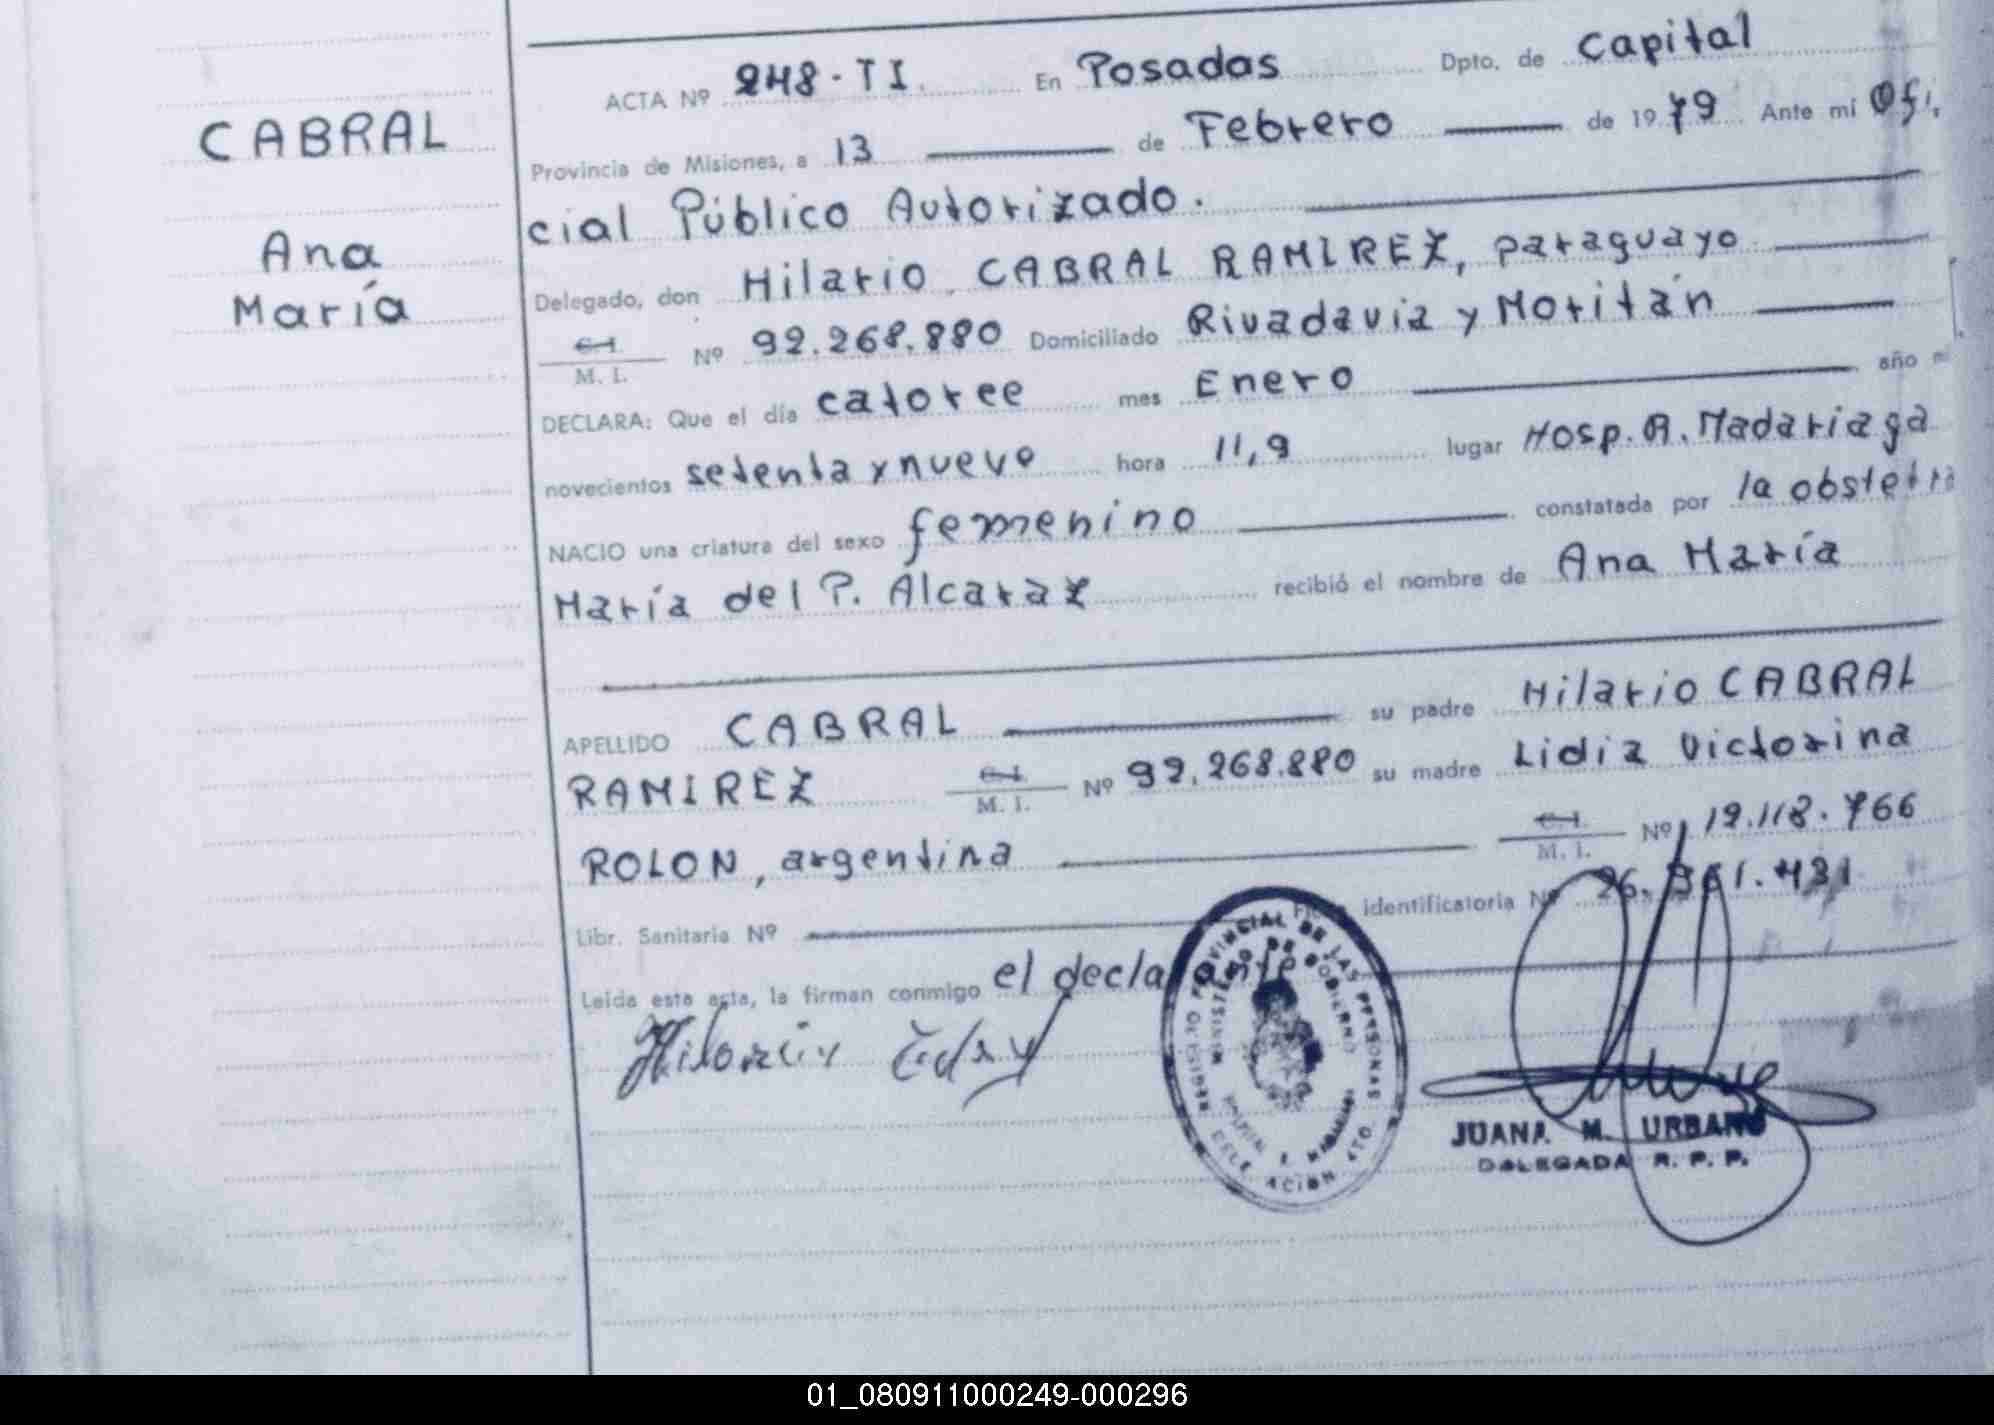 CABRAL
Ana
María
ACTA Nº 248-TI. En Posadas Dpto. de Capital
Provincia de Misiones, a 13 de Febrero de 1979 Ante mí Ofi,
cial Público Autorizado.
Delegado, don Hilario CABRAL RAMIREZ, paraguayo
C.I.
M. I. Nº 92.268.880 Domiciliado Rivadavia y Moritán
DECLARA: Que el día catorce mes Enero año
novecientos setenta y nueve hora 11,9 lugar Hosp. R. Madariaga
NACIO una criatura del sexo femenino constatada por la obstetra
María del P. Alcaraz recibió el nombre de Ana María
APELLIDO CABRAL su padre Hilario CABRAL
RAMIREZ C.I. M. I. Nº 92.268.880 su madre Lidia Victorina
ROLON, argentina C.I. M. I. Nº 12.118.766
Libr. Sanitaria Nº identificatoria Nº
Leída esta acta, la firman conmigo el
PROVINCIAL DE LAS PERSONAS
MINISTERIO DE GOBIERNO
JUANA M. URBANO
DALEGADA R. P. P.
01_080911000249-000296